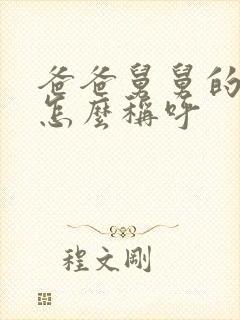 爸爸舅舅的
怎麼稱呼
程文剛